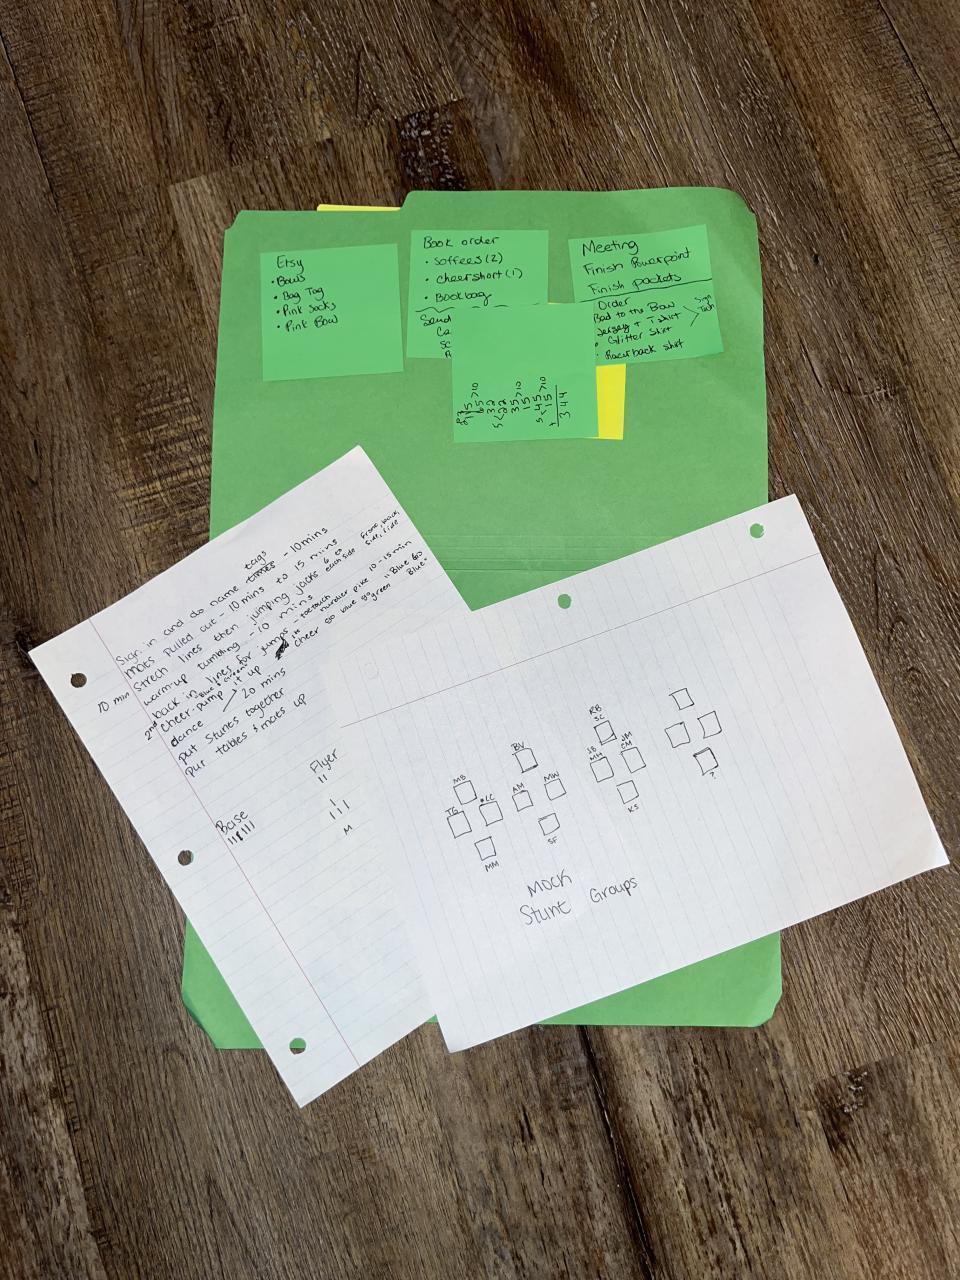 Etsy
• Bows
• Bag Tag
• Pink Socks
• Pink Bow
Book order
• soffees (2)
• cheer short (1)
• Bookbag
Send
Ca
sc
Meeting
Finish Powerpoint
Finish packets
Order
Bad to the Bow
Jersey + Tshirt > Sign
• Glitter Shirt
• Racerback shirt
344
Sign in and do name tags
mats pulled out - 10 mins - 10mins
Strech lines then jumping jacks to 15 mins
10 min warm-up tumbling - 10 mins each side front, back, side, side
back in lines for jumps - toetouch hurdler pike 10-15 min
2nd Cheer - pump it up 1st cheer go blue go green "Blue Go Blue"
Blue & Green
dance > 20 mins
put stunts together
put tables & mats up
Base
Flyer
MB
TG
•LC
MM
BV
AM
MW
SF
RB
SC
JB
MH
JM
CM
KS
?
MOCK
Stunt Groups